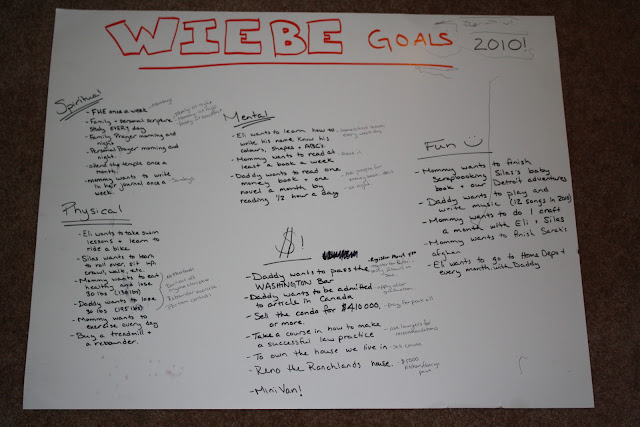 WIEBE GOALS 2010!
Spiritual
- FHE once a week - Monday
- Family + personal scripture
study EVERY day
- Family Prayer morning and
night
- Personal Prayer morning and
night.
- attend the temple once a
month!
- mommy wants to write
in her journal once a
week - Sundays
Physical
- Eli wants to take swim
lessons + learn to
ride a bike.
- Silas wants to learn
to roll over, sit up,
crawl, walk, etc.
- Mommy wants to eat
healthy and lose
30 lbs
- Daddy wants to lose
30 lbs (195 lbs)
- Mommy wants to
exercise every day
- Buy a treadmill +
a rebounder.
Mental
- Eli wants to learn how to
write his name know his
colours, shapes + ABC's.
- Mommy wants to read at
least a book a week
- Daddy wants to read one
money book + one
novel a month by
reading 1/2 hour a day
$
- Daddy wants to pass the
WASHINGTON Bar
- Daddy wants to be admitted
to article in Canada
- Sell the condo for $410,000
or more.
- Take a course in how to make
a successful law practice
- To own the house we live in - sell condo
- Reno the Ranchlands house. - $5000
- Mini Van!
Fun
- Mommy wants to finish
Scrapbooking Silas's baby
book + our Detroit adventures
- Daddy wants to play and
write music (12 songs in 2010)
- Mommy wants to do 1 craft
a month with Eli + Silas
- Mommy wants to finish Sarah's
afghan
- Eli wants to go to Home Depot
every month with Daddy